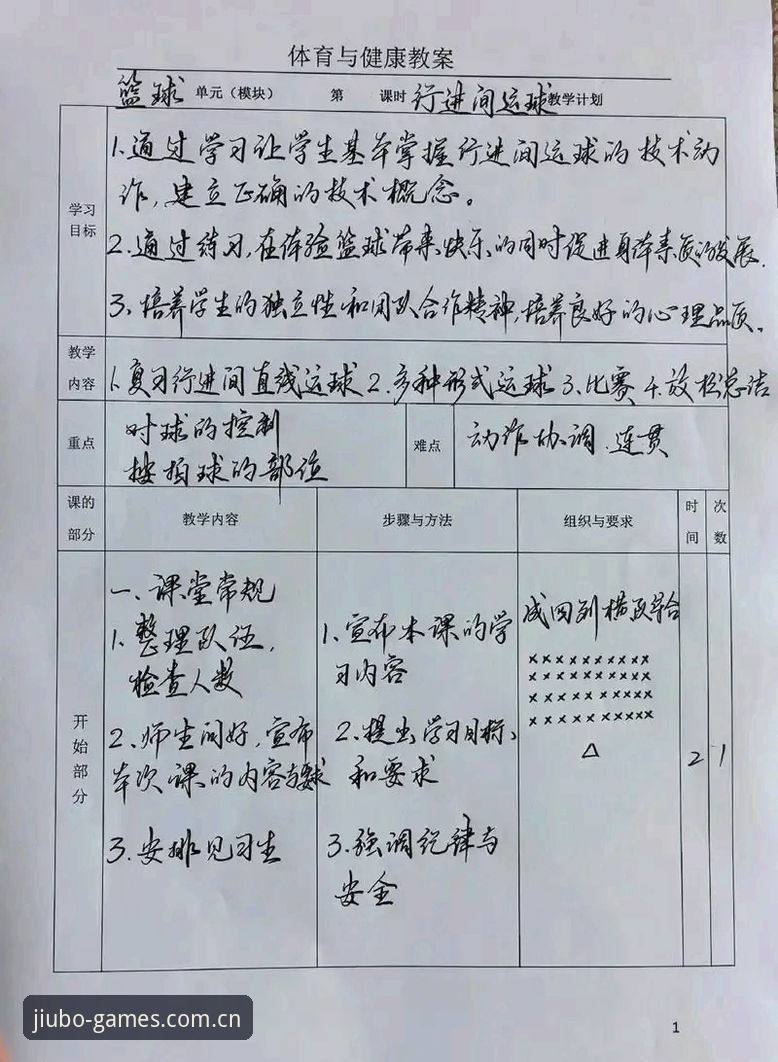 体育与健康教案
篮球 单元（模块） 第 课时 行进间运球 教学计划
学习目标
1.通过学习让学生基本掌握行进间运球的技术动
作,建立正确的技术概念。
2.通过练习,在体验篮球带来快乐的同时促进身体素质的发展.
3.培养学生的独立性和团队合作精神,培养良好的心理品质。
教学内容
1.复习行进间直线运球 2.多种形式运球 3.比赛 4.放松总结
重点
对球的控制
按拍球的部位
难点
动作协调.连贯
课的部分 教学内容 步骤与方法 组织与要求 时间 次数
开始部分
一、课堂常规
1.整理队伍,
检查人数
2.师生问好,宣布
本次课的内容与要求
3.安排见习生
1.宣布本课的学
习内容
2.提出学习目标、
和要求
3.强调纪律与
安全
成四列横队集合
×××××××××××
×××××××××××
×××××××××××
×××××××××××
△
2 1
1
jiubo-games.com.cn